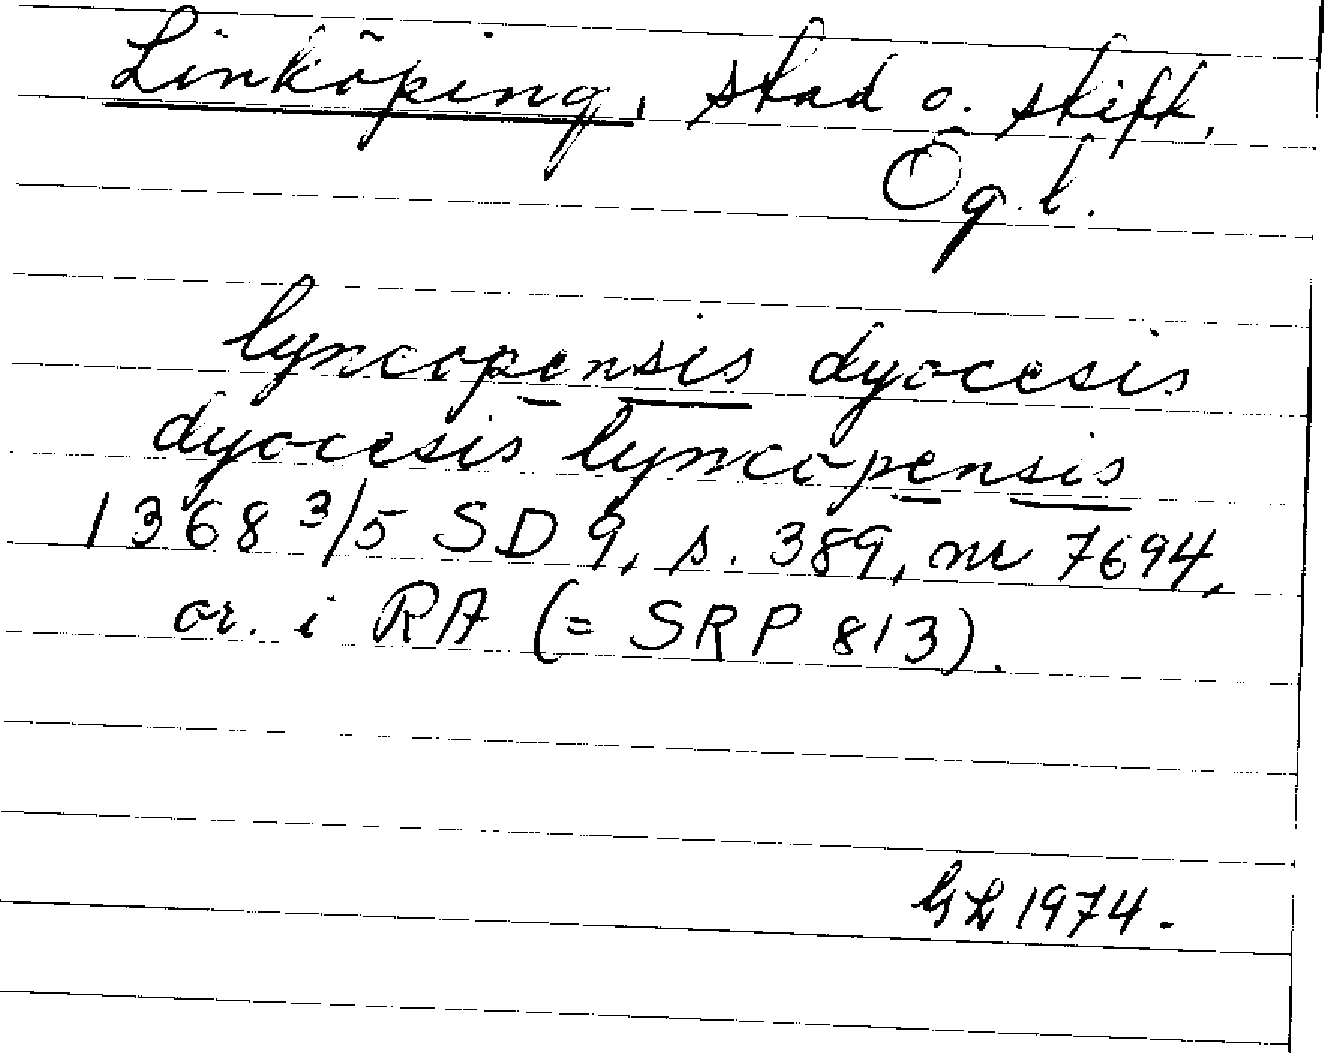 Linköping, stad o. stift,
Ög. l.
lyncopensis dyocesis
dyocesis lyncopensis
1368 3/5 SD 9, s. 389, nr 7694,
or. i RA (= SRP 813).
1974.